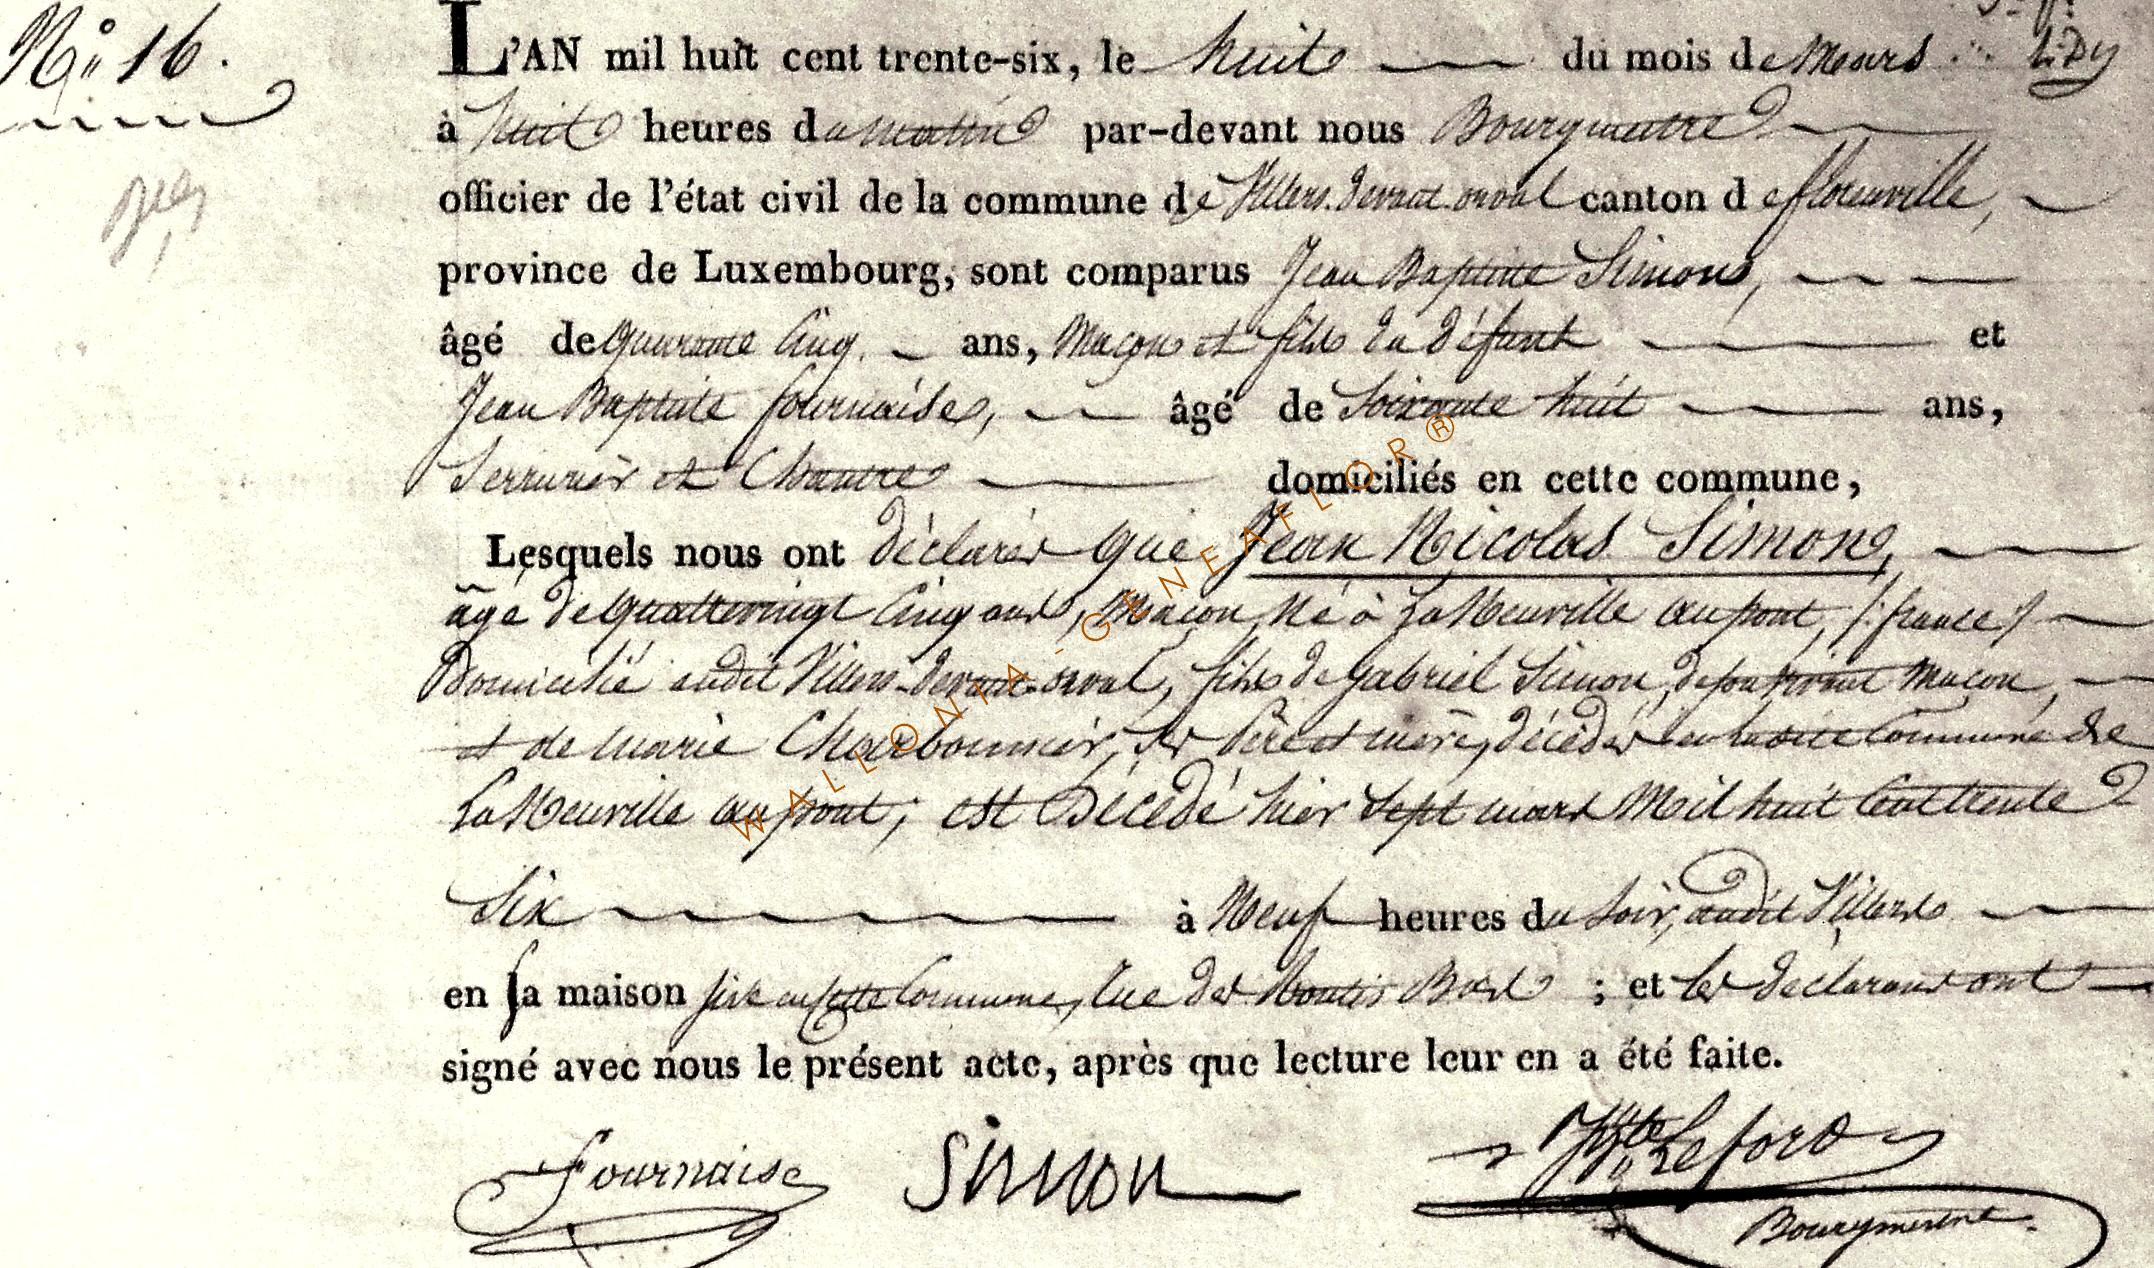 N.° 16.
L'AN mil huit cent trente-six, le huit du mois de Mars
à huit heures du matin par-devant nous Bourgmestre
officier de l'état civil de la commune de Villers-devant-orval canton de florenville,
province de Luxembourg, sont comparus Jean Baptiste Simon,
âgé de quarante Cinq ans, Maçon et fils du défunt et
Jean Baptiste fournaise, âgé de Soixante huit ans,
Serrurier et Chantre domiciliés en cette commune,
Lesquels nous ont déclarés que Jean Nicolas Simon,
âgé de quattervingt Cinq ans, Maçon, né à La Neuville au pont, (: france)
Domicilié audit Villers-devant-orval, fils de gabriel Simon, de son vivant Maçon,
et de marie Charbonnier, ses Père et mère, décédés en ladite Commune de
La Neuville au pont; est Décédé hier Sept mars Mil huit Cent trente
Six à Neuf heures du Soir, audit Villers
en sa maison sise en cette Commune, rue des Bois ; et les déclarans ont
signé avec nous le présent acte, après que lecture leur en a été faite.
Fournaise Simon Jp.te Lefort
Bourgmestre
WALLONIA - GENEAFLOR ®